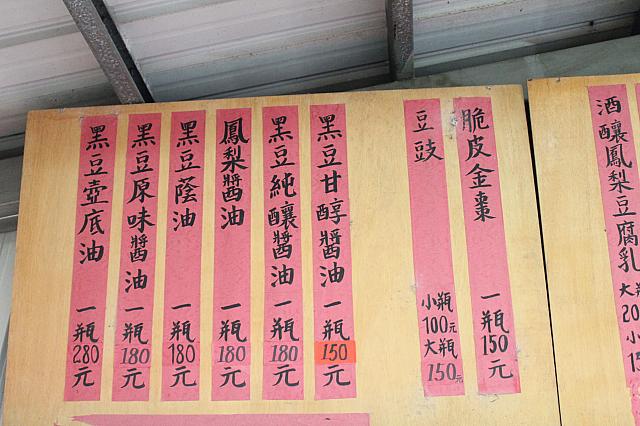 酒釀鳳梨豆腐乳
大瓶
20
小
15
脆皮金棗 一瓶150元
豆豉
小瓶
100元
大瓶
150元
黑豆甘醇醬油 一瓶150元
黑豆純釀醬油 一瓶180元
鳳梨醬油 一瓶180元
黑豆蔭油 一瓶180元
黑豆原味醬油 一瓶180元
黑豆壺底油 一瓶280元